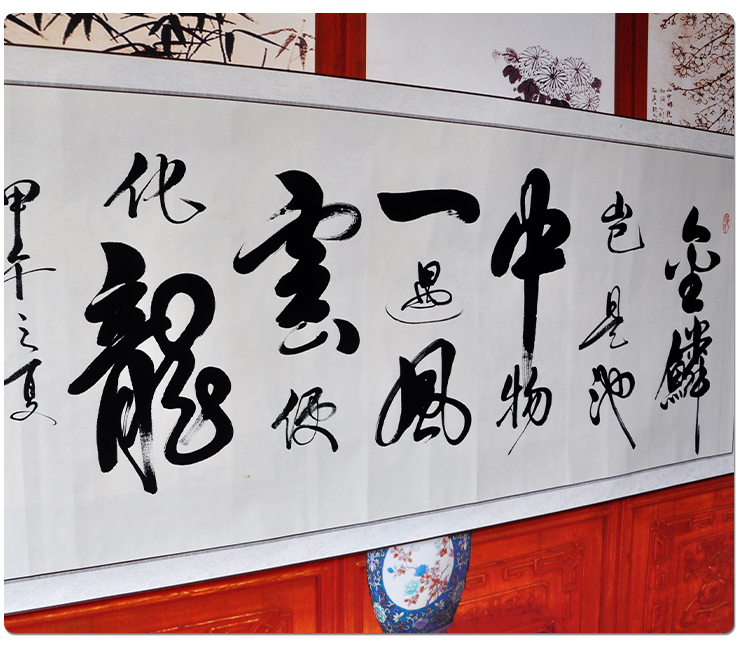 金鳞
岂是池
中物
一遇风
雲便
化龍
甲午之夏